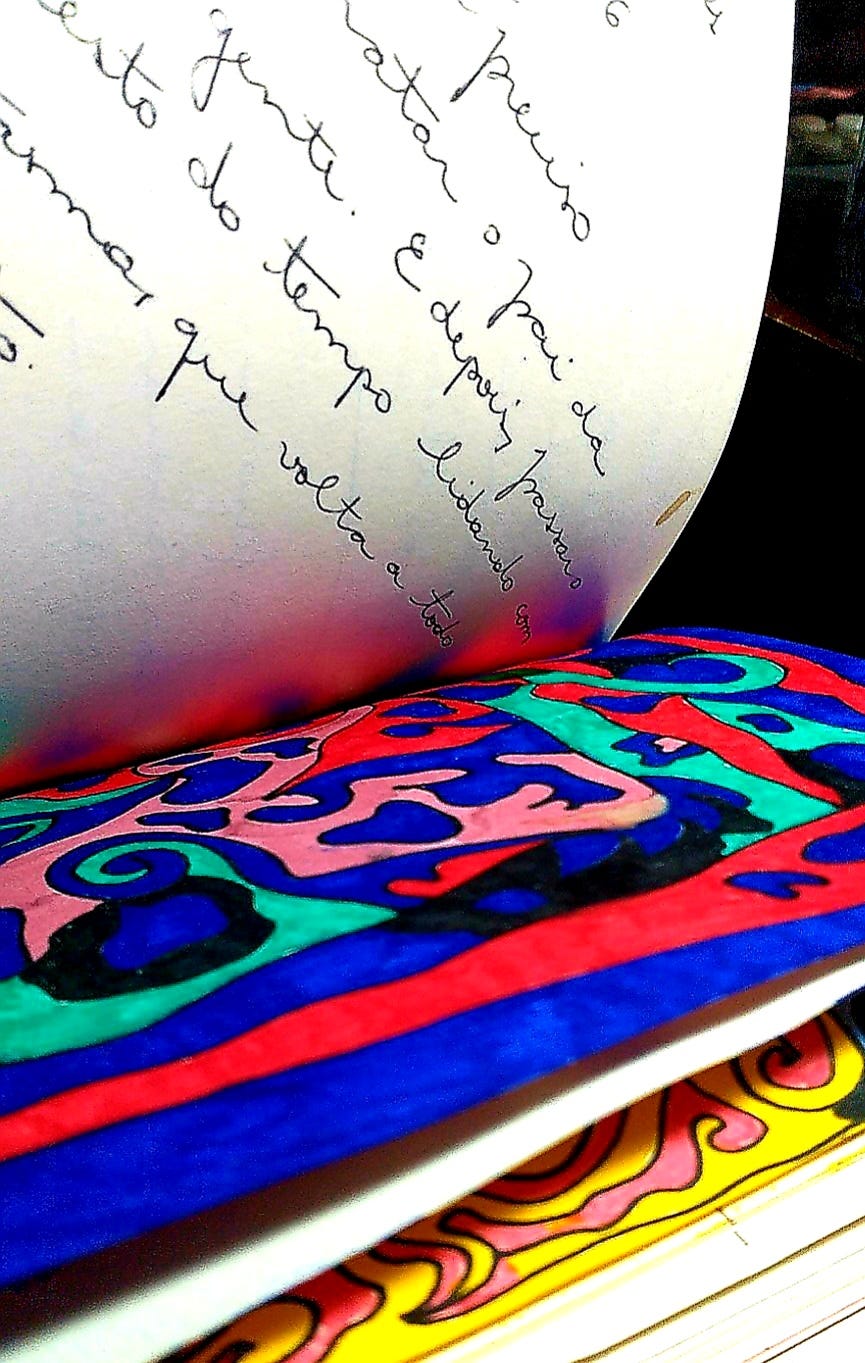 preciso
matar o pai da
gente. E depois, passar o
resto do tempo lidando com
asma, que volta a todo
to.